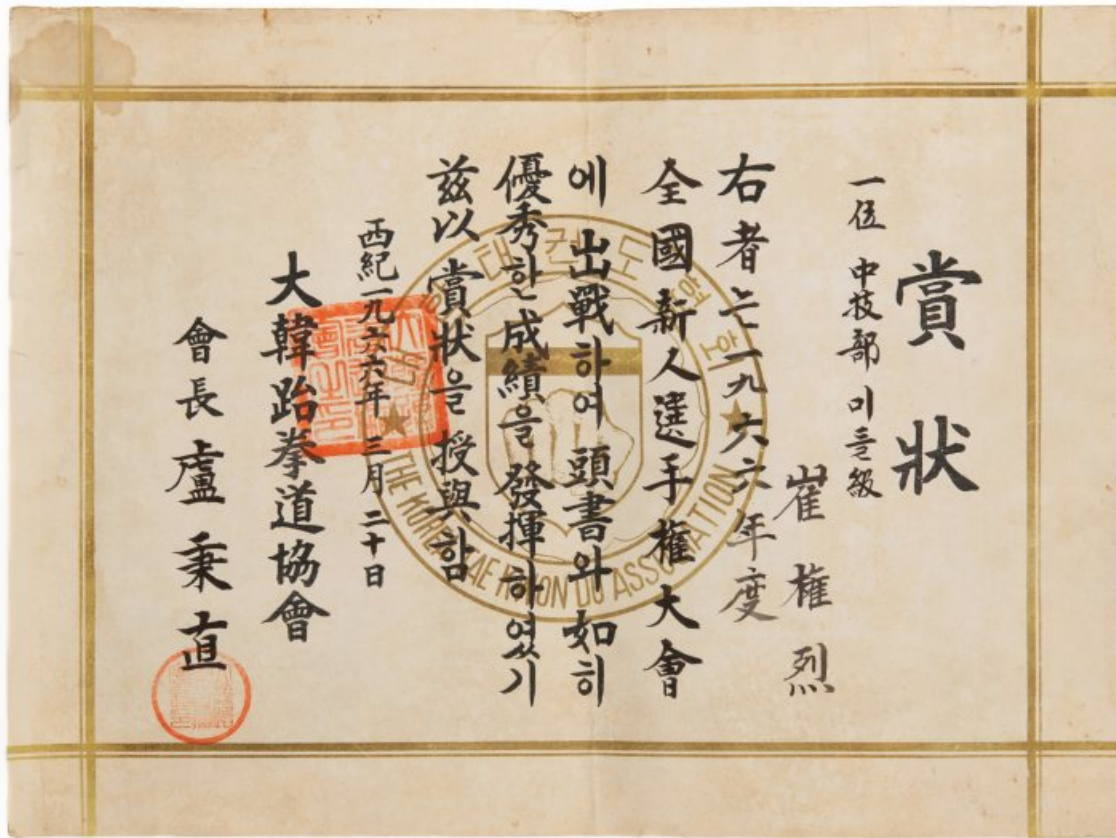 賞狀
一位 中技部 미들級
崔權烈
右者는 一九六六年度
全國新人選手權大會
에 出戰하여 頭書와 如히
優秀한 成績을 發揮하였기
茲以 賞狀을 授與함
西紀一九六六年 三月二十日
大韓跆拳道協會
會長 盧秉直
대한태권도협회
THE KOREA TAE KWON DO ASSOCIATION